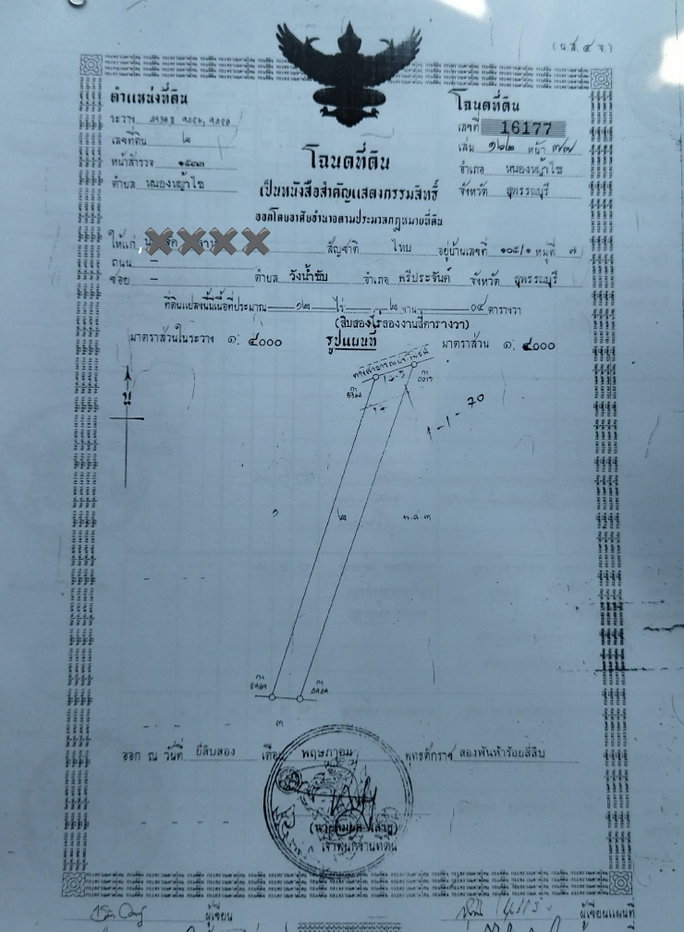 (น.ส.๔ จ.)
ตำแหน่งที่ดิน
ระวาง
เลขที่ดิน ๒
หน้าสำรวจ ๑๕๓๓
ตำบล หนองหญ้าไซ
โฉนดที่ดิน
เลขที่ 16177
เล่ม ๑๖๒ หน้า ๗๗
อำเภอ หนองหญ้าไซ
จังหวัด สุพรรณบุรี
โฉนดที่ดิน
เป็นหนังสือสำคัญแสดงกรรมสิทธิ์
ออกโดยอาศัยอำนาจตามประมวลกฎหมายที่ดิน
ให้แก่ สัญชาติ ไทย อยู่บ้านเลขที่ ๑๓๕/๑ หมู่ที่ ๗
ถนน —
ซอย — ตำบล วังน้ำซับ อำเภอ ศรีประจันต์ จังหวัด สุพรรณบุรี
ที่ดินแปลงนี้มีเนื้อที่ประมาณ ๑๒ ไร่ ๒ งาน ๐๔ ตารางวา
(สิบสองไร่สองงานสี่ตารางวา)
มาตราส่วนในระวาง ๑: ๔๐๐๐ รูปแผนที่ มาตราส่วน ๑: ๔๐๐๐
น
1-1-70
๑ ๒ น.ส.๓
๓
ออก ณ วันที่ ยี่สิบสอง เดือน พฤษภาคม พุทธศักราช สองพันห้าร้อยสี่สิบ
เจ้าพนักงานที่ดิน
ผู้เขียน ผู้เขียนแผนที่